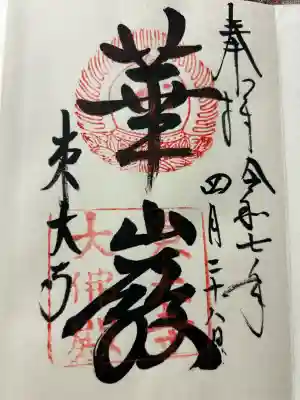 奉拝 令和七年
四月二十八日
華厳
東大寺
大佛殿